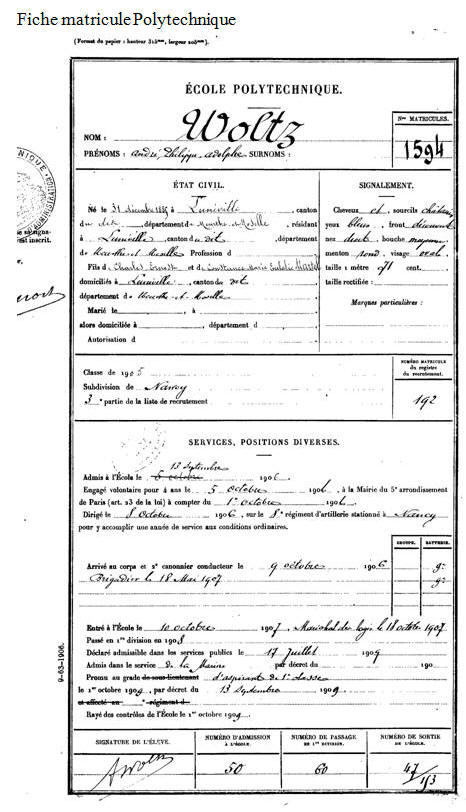 Fiche matricule Polytechnique
(Format du papier : hauteur 315mm, largeur 205mm.)
ÉCOLE POLYTECHNIQUE.
Nos MATRICULES.
1594
NOM : Woltz
PRÉNOMS : André Philippe Adolphe SURNOMS :
ÉTAT CIVIL.
Né le 31 décembre 1885 à Lunéville, canton
du dit, département de Meurthe et Moselle, résidant
à Lunéville, canton du dit, département
de Meurthe et Moselle Profession d
Fils de Charles Ernest et de Constance Marie Eulalie
domiciliés à Lunéville, canton du dit
département de Meurthe et Moselle
Marié le , à
alors domiciliée à , département d
Autorisation d
SIGNALEMENT.
Cheveux et sourcils châtains
yeux bleus, front découvert
nez droit, bouche moyenne
menton rond, visage ovale
taille : mètre cent.
taille rectifiée :
Marques particulières :
Classe de 1905
Subdivision de Nancy
3e partie de la liste de recrutement
NUMÉRO MATRICULE
du registre
du recrutement.
192
SERVICES, POSITIONS DIVERSES.
13 Septembre
Admis à l'École le 5 octobre 1906.
Engagé volontaire pour 4 ans le 5 octobre 1906, à la Mairie du 5e arrondissement
de Paris (art. 23 de la loi) à compter du 1er octobre 1906
Dirigé le 8 Octobre 1906, sur le 8e régiment d'artillerie stationné à Nancy
pour y accomplir une année de service aux conditions ordinaires.
GROUPE. BATTERIE.
Arrivé au corps et 2e canonnier conducteur le 9 octobre 1906
Brigadier le 18 Mai 1907
Entré à l'École le 10 octobre 1907, Maréchal des logis le 18 octobre 1907
Passé en 1re division en 1908
Déclaré admissible dans les services publics le 17 Juillet 1909
Admis dans le service de la Marine par décret du 190
Promu au grade de sous-lieutenant d'aspirant de 1e classe
le 1er octobre 1909, par décret du 13 Septembre 1909
et affecté au e régiment d
Rayé des contrôles de l'École le 1er octobre 1909.
SIGNATURE DE L'ÉLÈVE.
AWoltz
NUMÉRO D'ADMISSION
À L'ÉCOLE.
50
NUMÉRO DE PASSAGE
EN 1re DIVISION.
60
NUMÉRO DE SORTIE
DE L'ÉCOLE.
47
9-63-1906.